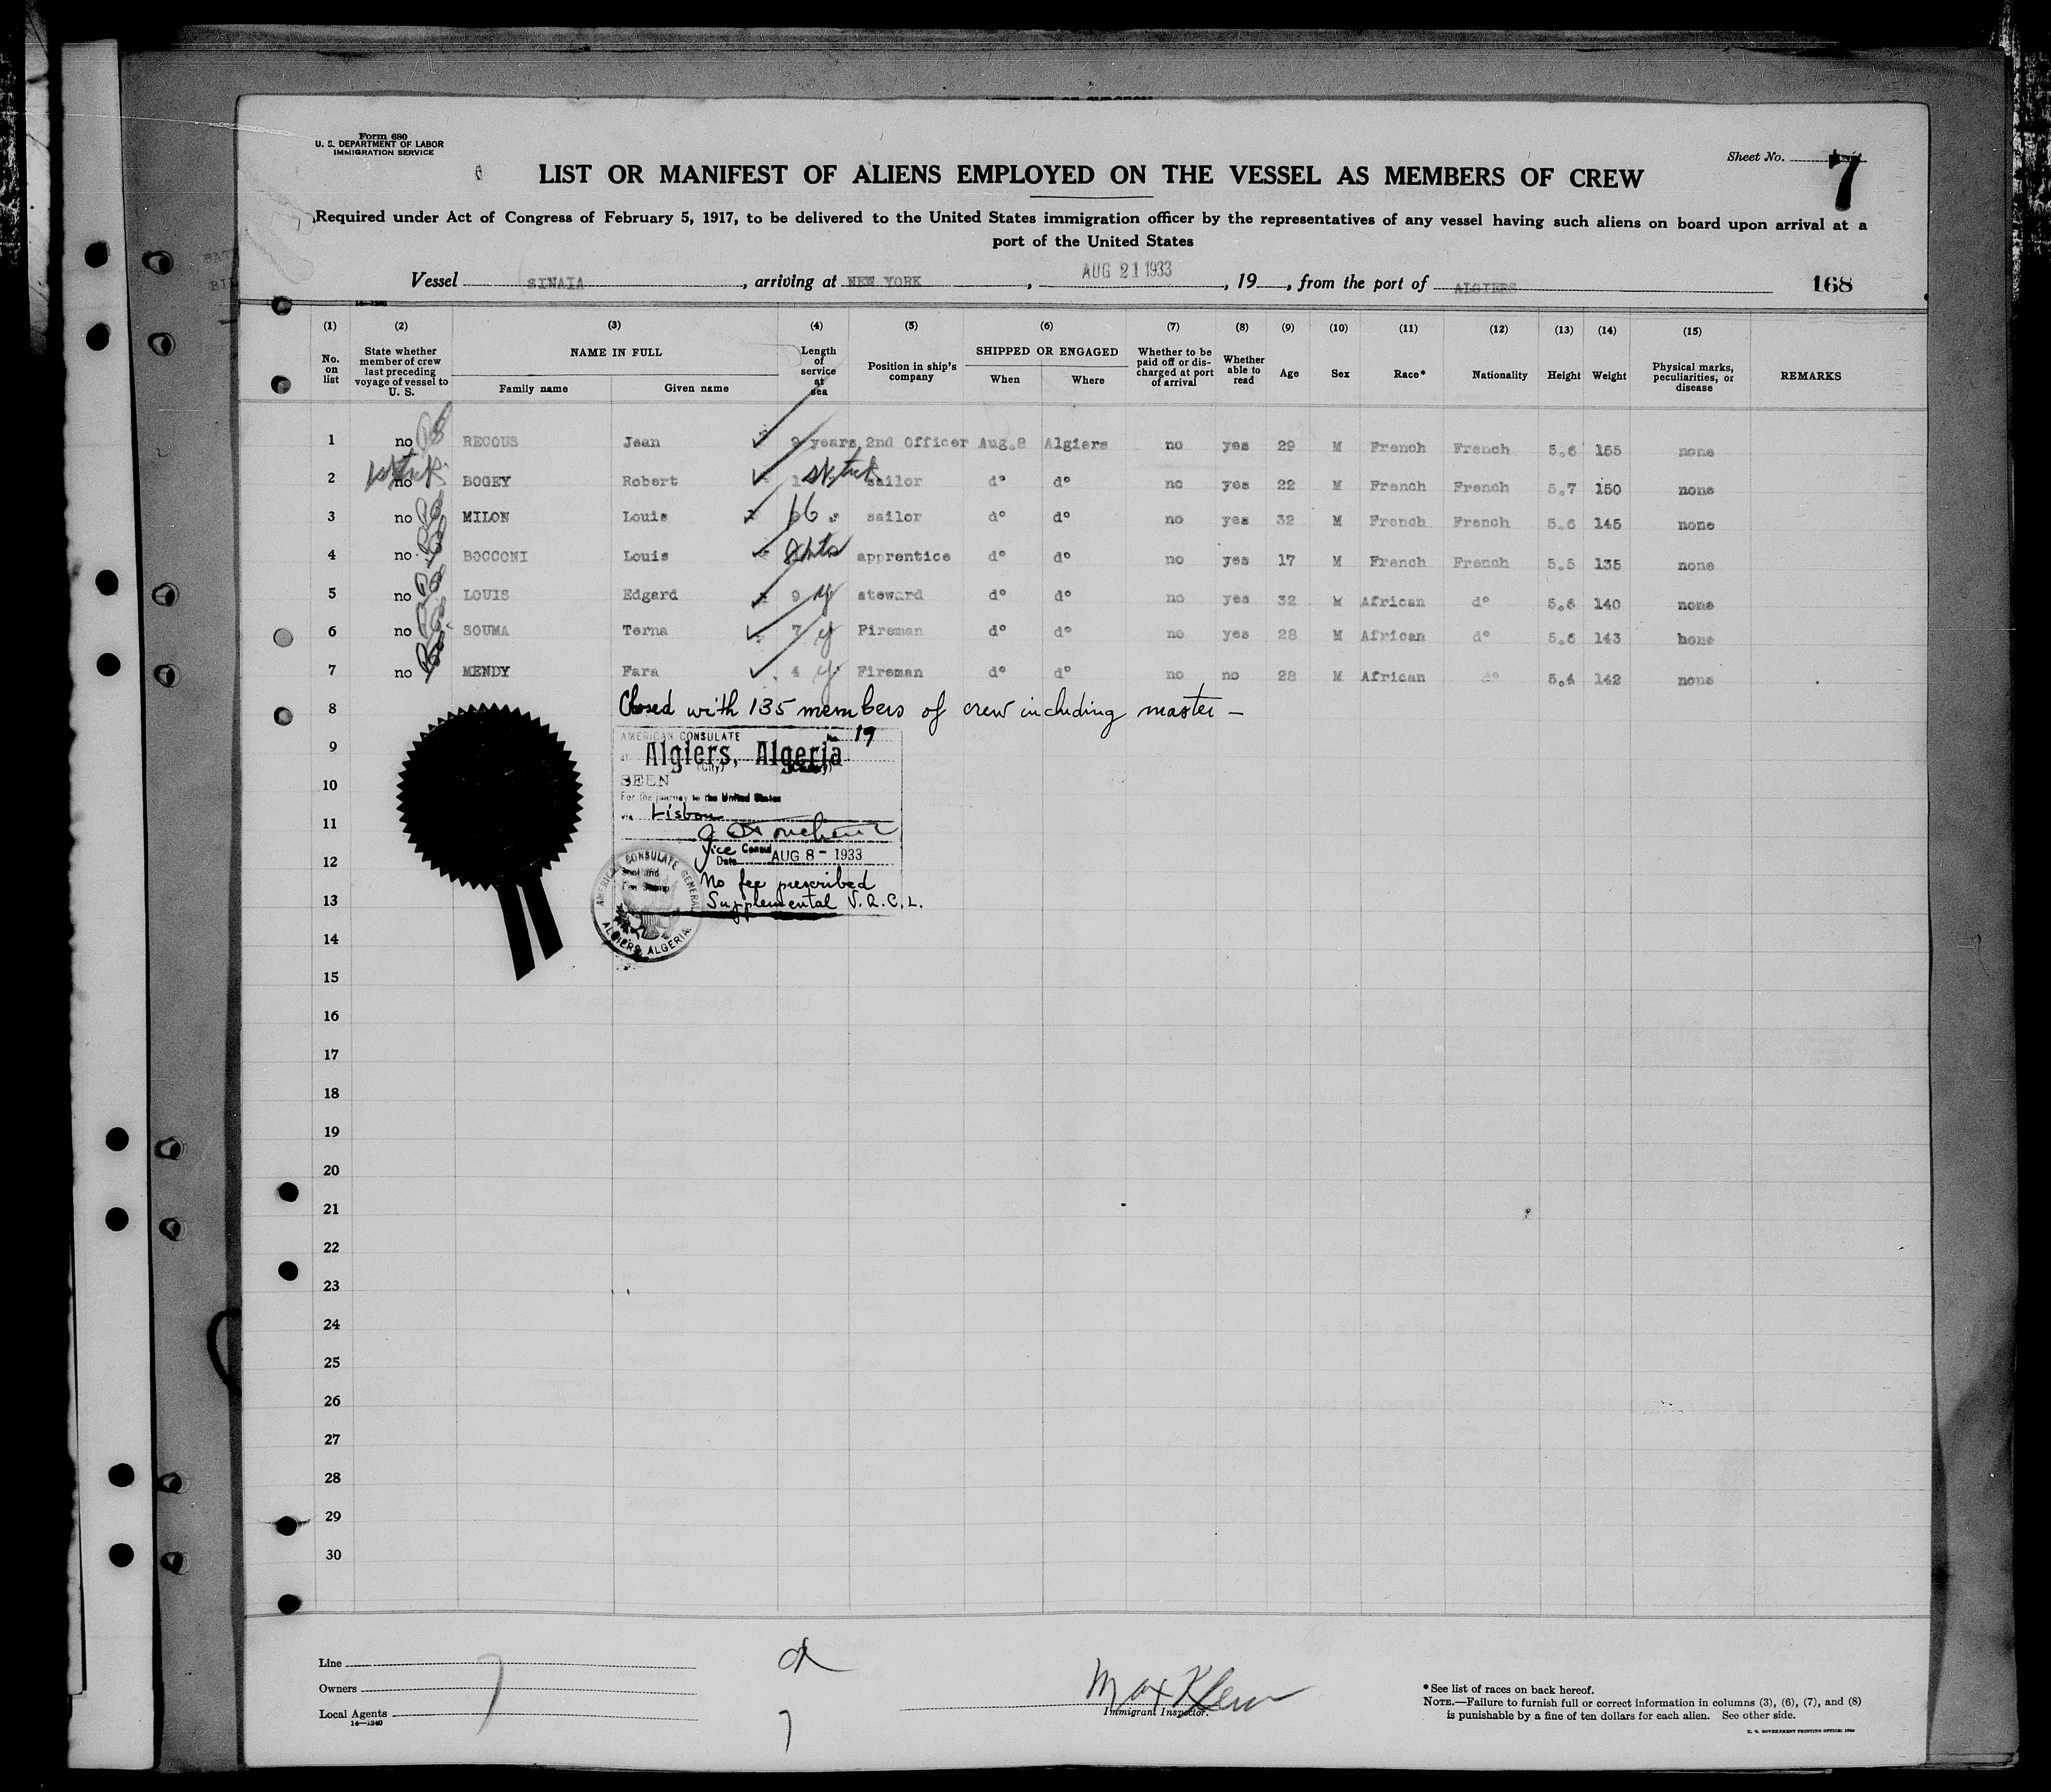 Form 680
U. S. DEPARTMENT OF LABOR
IMMIGRATION SERVICE
Sheet No. 7
LIST OR MANIFEST OF ALIENS EMPLOYED ON THE VESSEL AS MEMBERS OF CREW
Required under Act of Congress of February 5, 1917, to be delivered to the United States immigration officer by the representatives of any vessel having such aliens on board upon arrival at a
port of the United States
Vessel SINAIA, arriving at NEW YORK, AUG 21 1933, 19 , from the port of ALGIERS 168
14—1240
(1) (2) (3) (4) (5) (6) (7) (8) (9) (10) (11) (12) (13) (14) (15)
No. on list State whether member of crew last preceding voyage of vessel to U. S. NAME IN FULL Family name Given name Length of service at sea Position in ship's company SHIPPED OR ENGAGED When Where Whether to be paid off or discharged at port of arrival Whether able to read Age Sex Race* Nationality Height Weight Physical marks, peculiarities, or disease REMARKS
1 no RECOUS Jean 9 years 2nd Officer Aug.8 Algiers no yes 29 M French French 5.6 155 none
2 no BOGEY Robert sailor d° d° no yes 22 M French French 5.7 150 none
3 no MILON Louis sailor d° d° no yes 32 M French French 5.6 145 none
4 no BOCCONI Louis apprentice d° d° no yes 17 M French French 5.5 135 none
5 no LOUIS Edgard 9 y steward d° d° no yes 32 M African d° 5.6 140 none
6 no SOUMA Terna 7 y Fireman d° d° no yes 28 M African d° 5.6 143 none
7 no MENDY Fara 4 y Fireman d° d° no no 28 M African d° 5.4 142 none
8 Closed with 135 members of crew including master —
AMERICAN CONSULATE No. 19
9 at Algiers, Algeria
(City)
10 SEEN
For the journey to the United States
11 via Lisbon
12 Vice Consul
Date AUG 8 - 1933
No fee prescribed
13 Supplemental V.R.C.L.
AMERICAN CONSULATE GENERAL
ALGIERS, ALGERIA
14
15
16
17
18
19
20
21
22
23
24
25
26
27
28
29
30
Line
Owners
Local Agents
14—1240
7
7
Max Klein
Immigrant Inspector.
*See list of races on back hereof.
NOTE.—Failure to furnish full or correct information in columns (3), (6), (7), and (8)
is punishable by a fine of ten dollars for each alien. See other side.